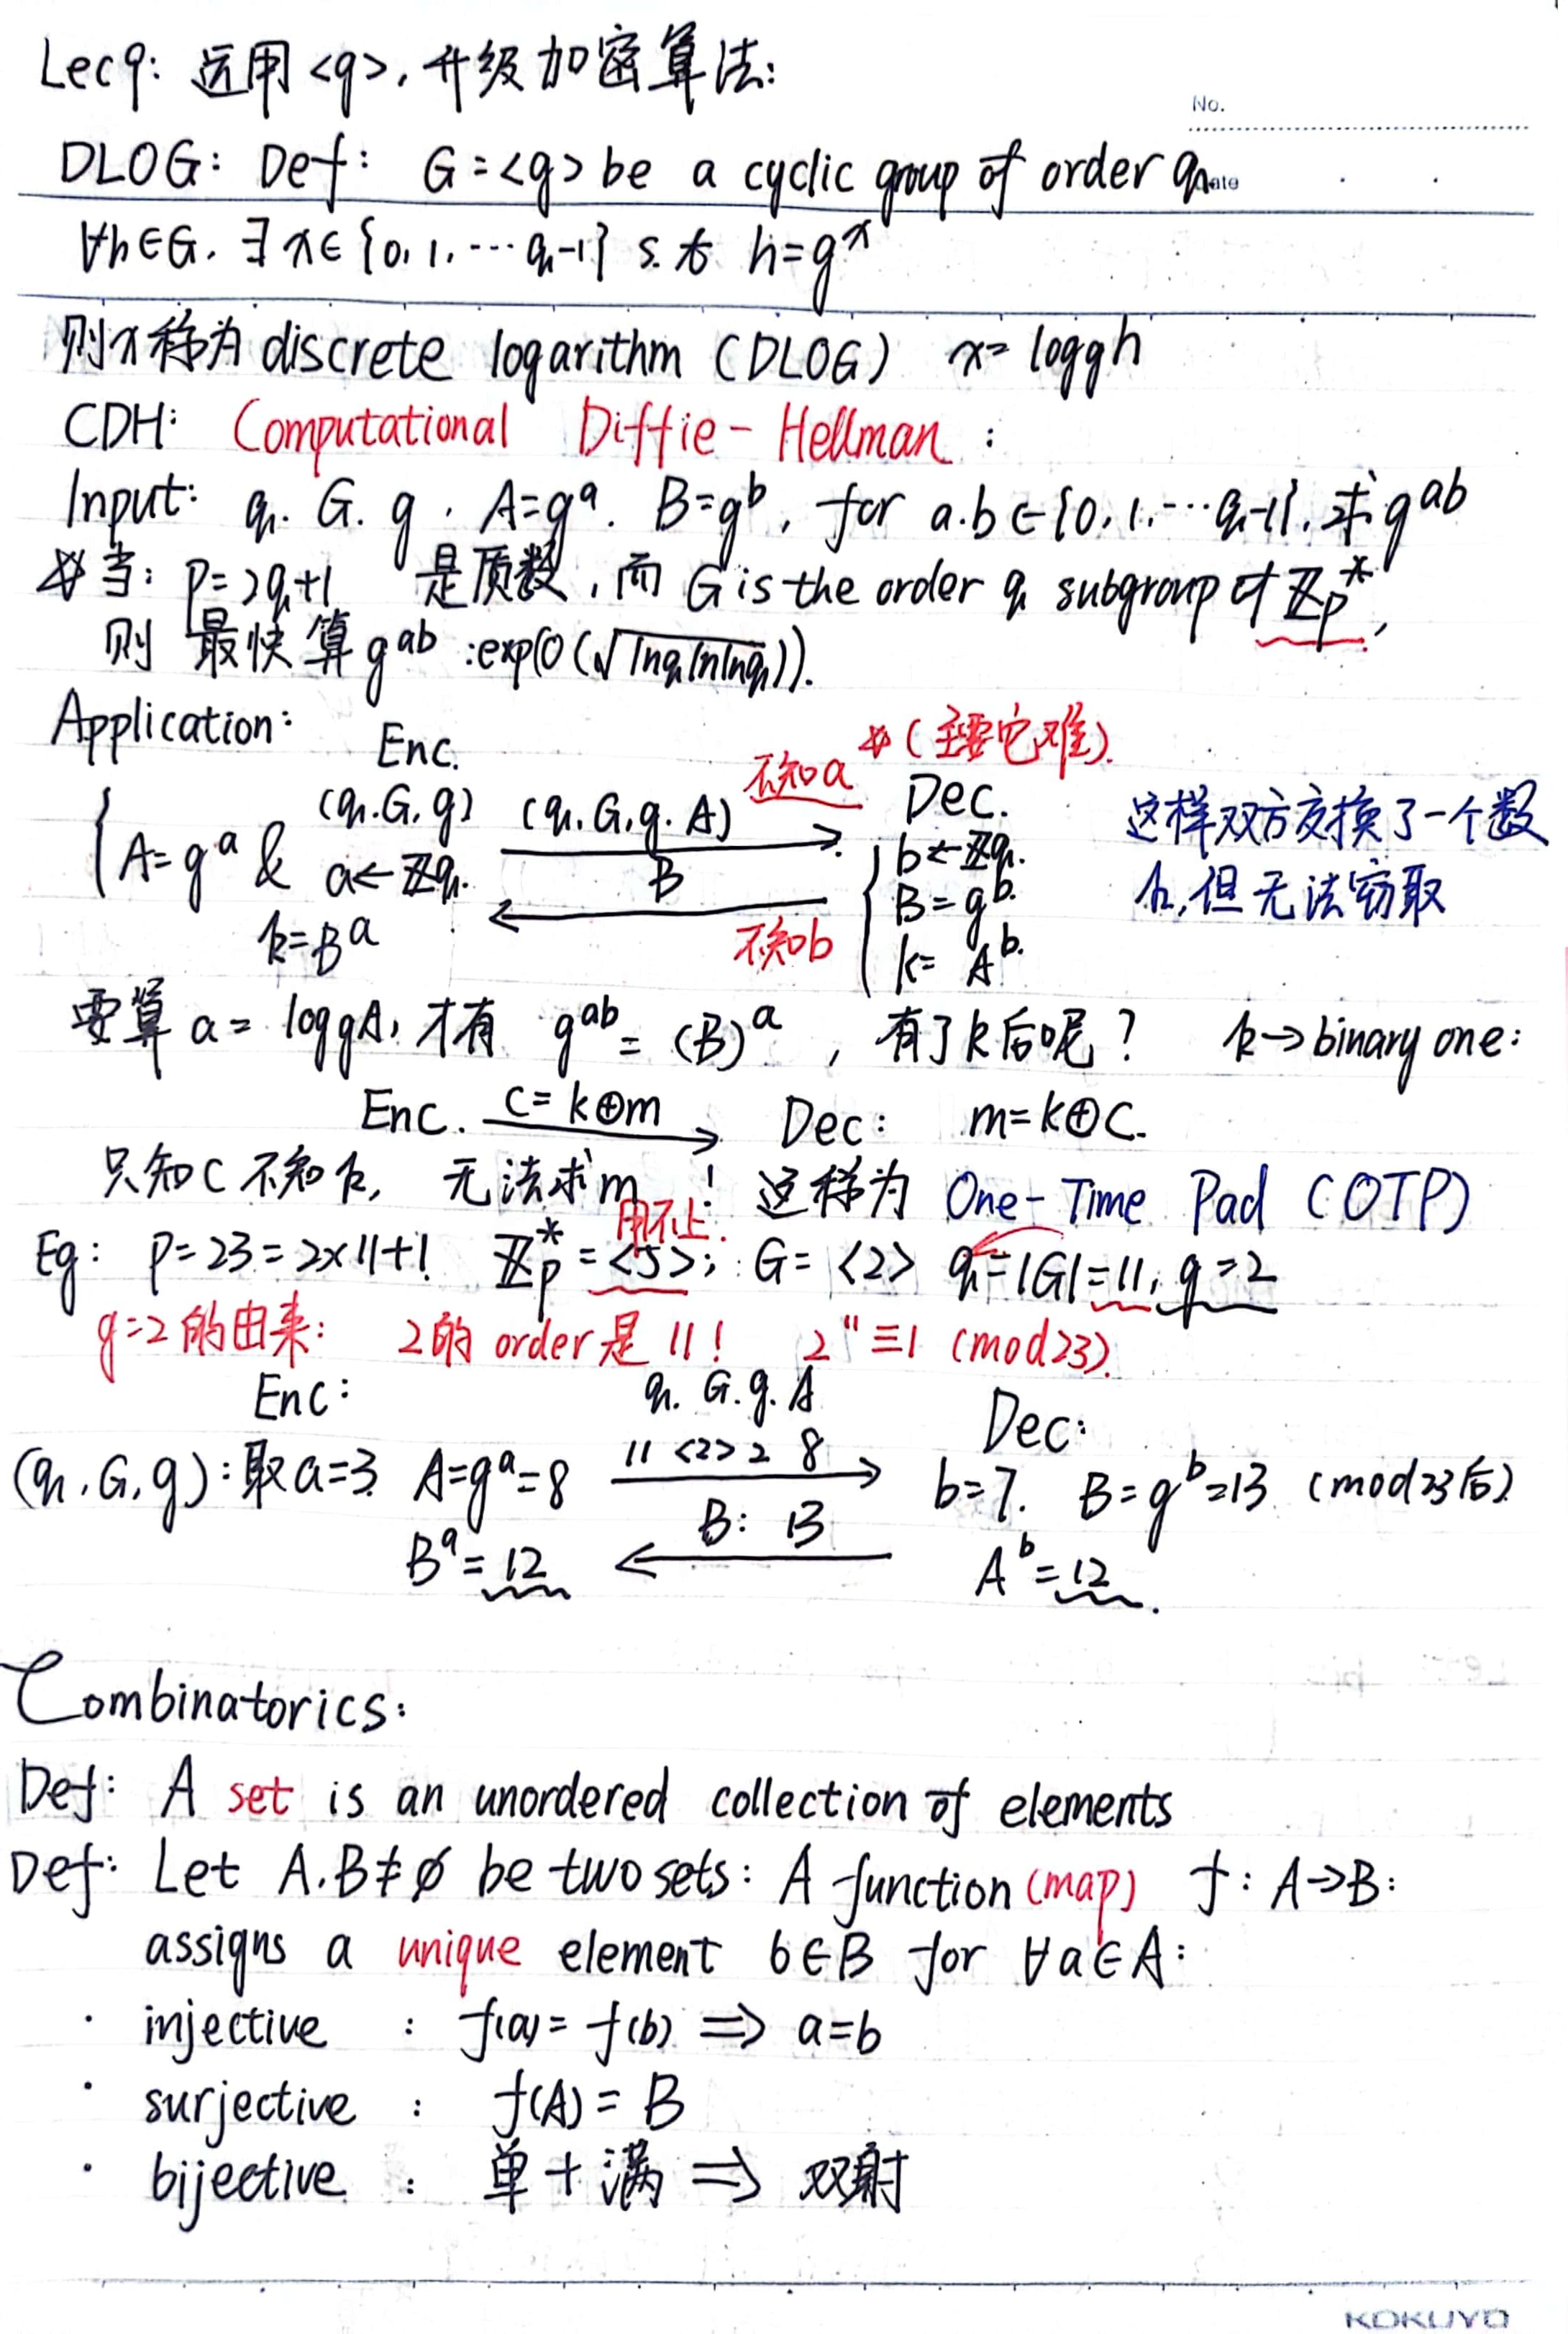 Lec9: 运用<g>,升级加密算法:
No.
DLOG: Def: G=<g> be a cyclic group of order q.
Date
∀h∈G. ∃x∈{0,1,…q-1} s.t h=g^x
则x称为 discrete logarithm (DLOG) x= log_g h
CDH: Computational Diffie-Hellman:
Input: q. G. g. A=g^a. B=g^b, for a.b∈{0,1,…q-1}, 求g^ab
当: p=2q+1 是质数,而 G is the order q subgroup of Z_p^*,
则 最快算g^ab :exp(O(√lnq lnlnq)).
Application:
Enc. 不知a (主要它难).
(q.G,g) (q.G,g.A) Dec. 这样双方交换了一个数
{A=g^a & a←Z_q. B b←Z_q. k,但无法窃取
B=g^b.
k=B^a 不知b k= A^b.
要算 a= log_g A, 才有 g^ab = (B)^a , 有了k后呢? k→binary one:
Enc. C=k⊕m Dec: m=k⊕C.
只知C不知k, 无法求m! 这称为 One-Time Pad (OTP)
用不上.
Eg: p=23=2×11+1 Z_p^*=<5>; G=<2> q=|G|=11, g=2
g=2的由来: 2的order是11! 2^11≡1 (mod23).
Enc: q. G. g. A Dec:
(q,G,g):取a=3. A=g^a=8 11 <2> 2 8 b=7. B=g^b=13 (mod23后)
B^a=12 B: 13 A^b=12.
Combinatorics:
Def: A set is an unordered collection of elements
Def: Let A.B≠∅ be two sets: A function (map) f: A→B:
assigns a unique element b∈B for ∀a∈A:
· injective : f(a)=f(b) ⇒ a=b
· surjective : f(A)=B
· bijective : 单+满 ⇒ 双射
KOKUYO